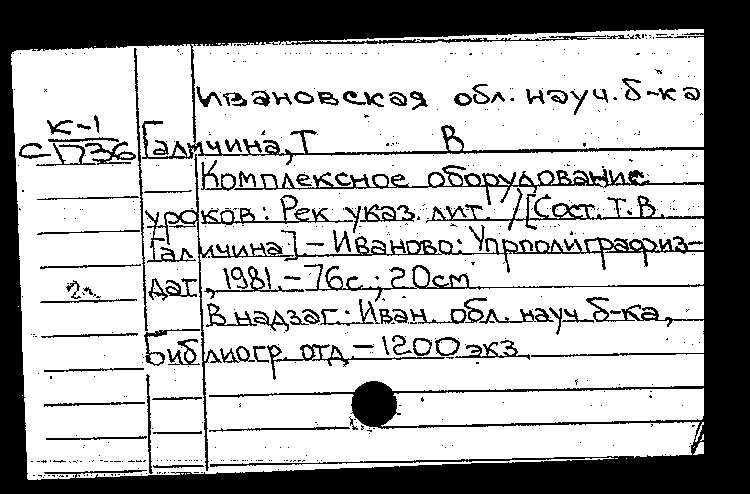 Ивановская обл. науч. б-ка
К-1
С-1736
Галичина, Т В
Комплексное оборудование
уроков: Рек указ. лит. / [Сост. Т.В.
Галичина]. - Иваново: Упрполиграфиз-
дат, 1981. - 76с.; 20см.
В надзаг: Иван. обл. науч б-ка,
библиогр. отд. - 1200 экз.